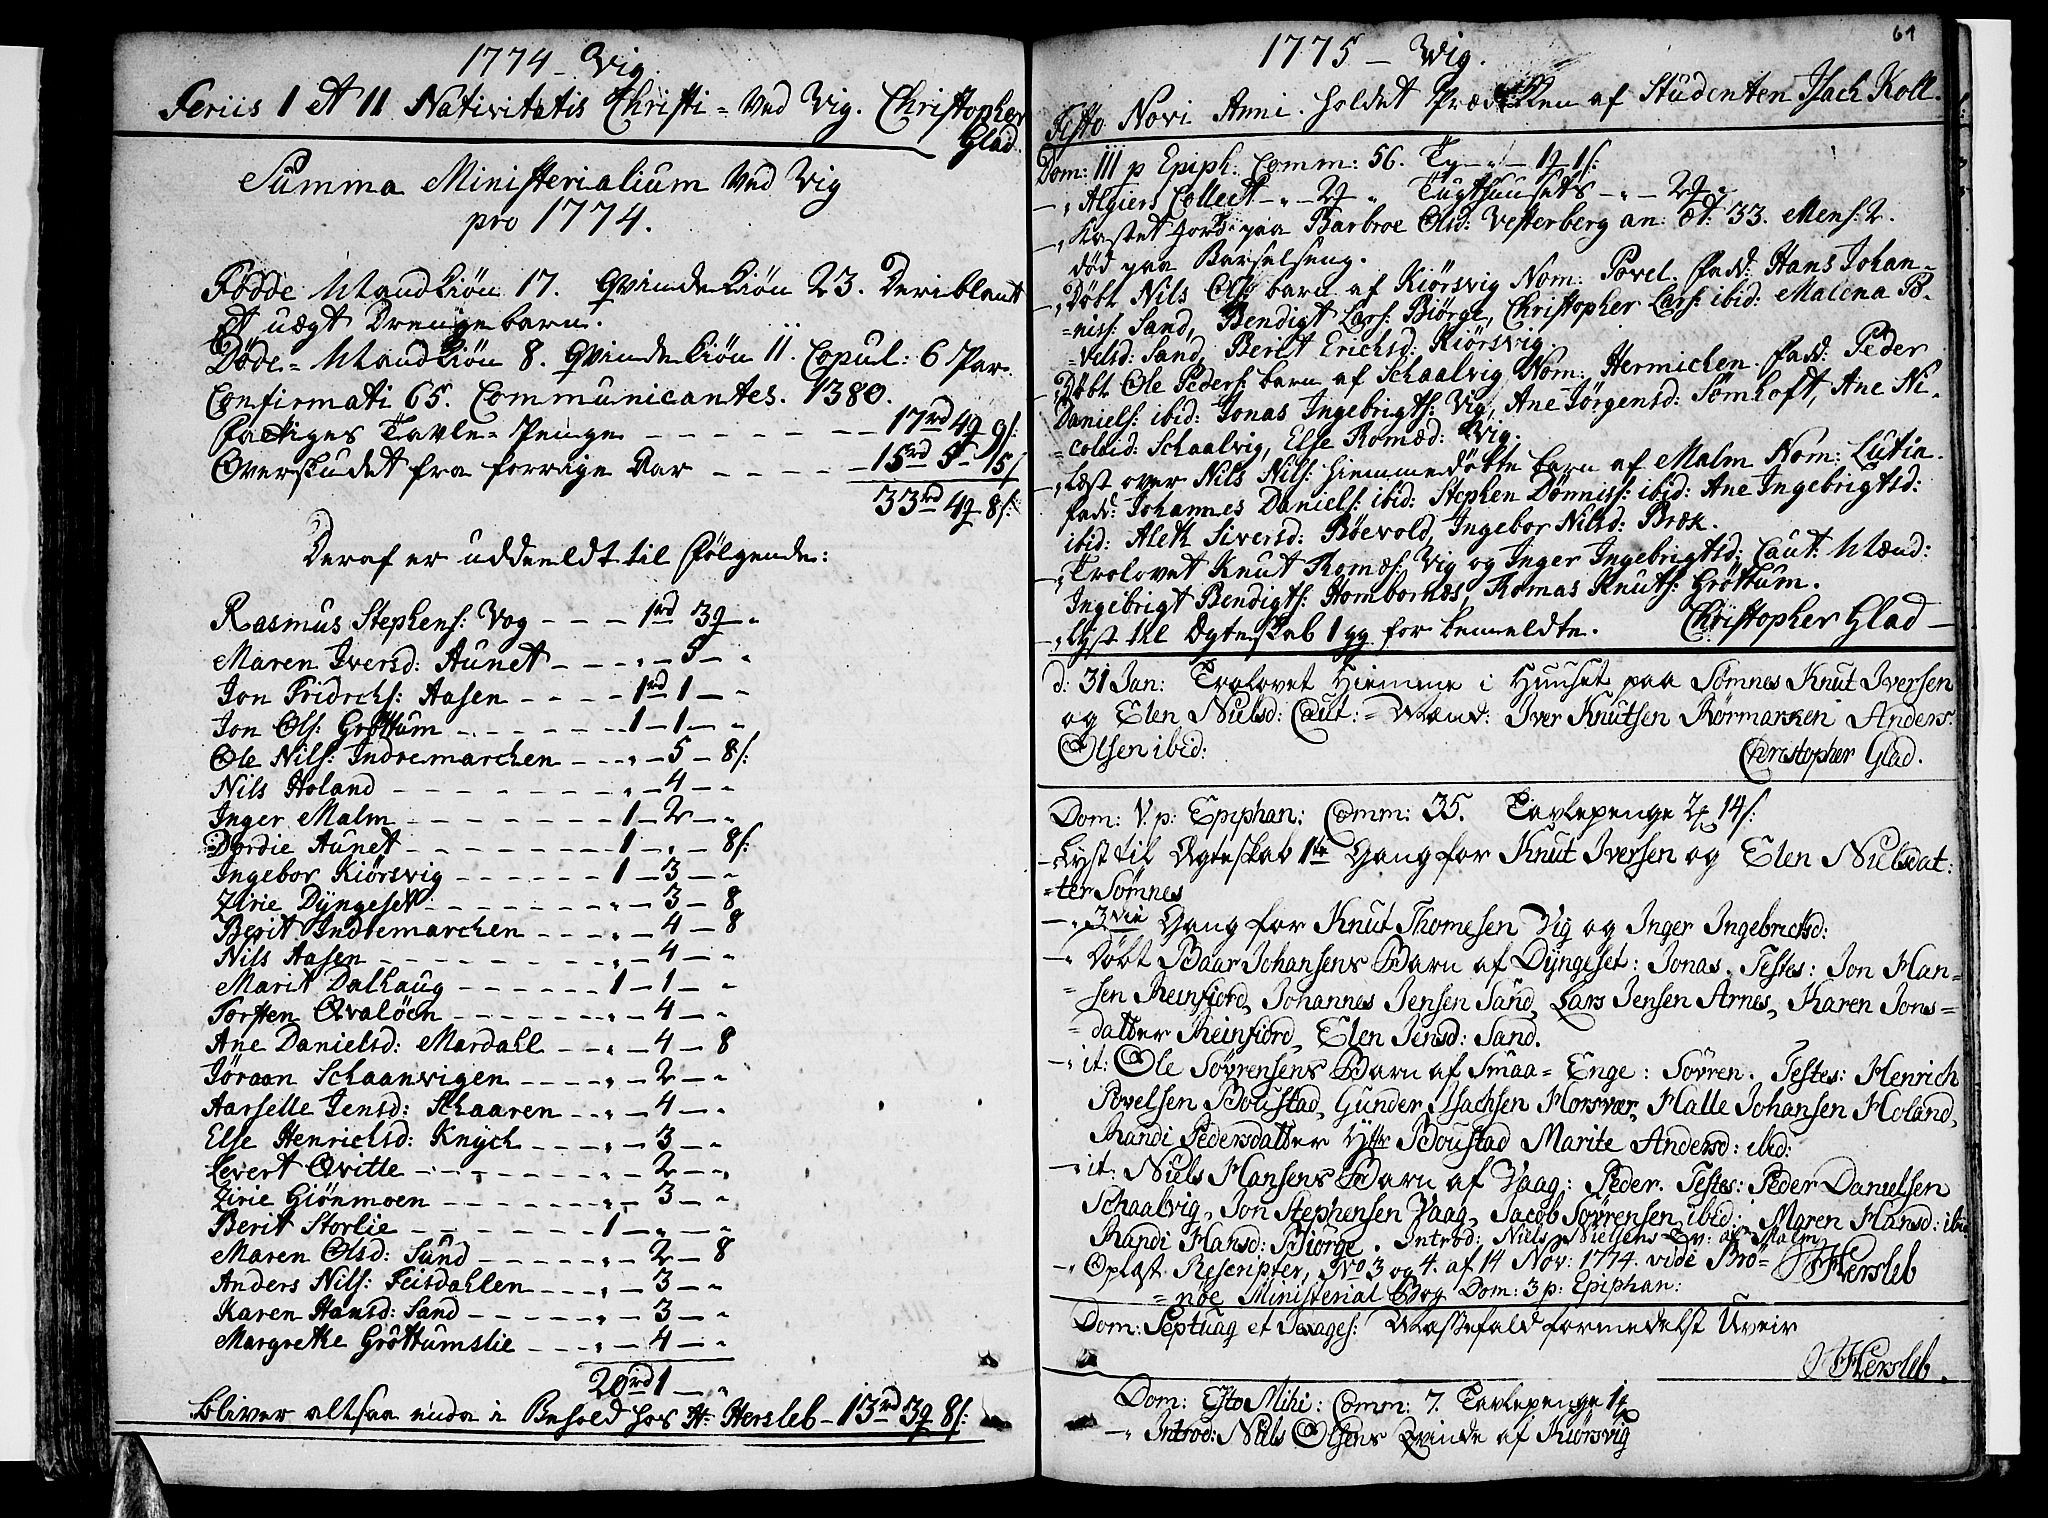 1774 - Vig.
Feriis I et II Nativitatis Christi = ved Vig. Christopher
Glad.
Summa Ministerialium ved Vig
pro 1774.
Fødde Mandkiøn 17. Qvindekiøn 23. Deriblant
et uægt Drengebarn.
Døde = Mandkiøn 8. Qvindekiøn 11. Copul: 6 Par.
Confirmati 65. Communicantes. 1380.
Fattiges Tavle-Penge - - - - - 17rd 4q 9s:
Overskudet fra forrige Aar - - - - - 15rd 5 - 15s
33rd 4q 8s:
Deraf er uddeeldt til følgende:
Rasmus Stephens: Vog - - - 1rd 3q - "
Maren Iversd: Aunet - - - " - 5 - "
Jon Fridrchs: Aasen - - - - 1rd 1 - "
Jon Ols: Grøttum - - - - - - 1 - 1 - "
Ole Nils: Indremarchen - - - " - 5 - 8s:
Nils Holand - - - - - - - - " - 4 - "
Inger Malm - - - - - - - - 1 - 2 - "
Dordie Aunet - - - - - - - 1 - " - 8s:
Ingebor Kiørsvig - - - - - - 1 - 3 - "
Zirie Dyngeset - - - - - - - " - 3 - 8
Berit Indremarchen - - - - " - 4 - 8
Nils Aasen - - - - - - - - - " - 4 - "
Marit Dalhaug - - - - - - 1 - 1 - "
Torsten Qvaløen - - - - - - " - 4 - "
Ane Danielsd: Mardahl - - - " - 4 - 8
Jøraan Schaanvigen - - - - " - 2 - "
Aarselle Jensd: Schaaren - - " - 4 - "
Else Henrichsd: Knÿch - - - " - 3 - "
Evert Qvitte - - - - - - - - " - 2 - "
Zirie Giønmoen - - - - - - " - 3 - "
Berit Storlie - - - - - - - 1 - " - "
Maren Olsd: Sund - - - - - " - 2 - 8
Anders Nils: Feisdahlen - - - " - 3 - "
Karen Hansd: Sand - - - - - " - 3 - "
Margrethe Grøttumslie - - - " - 4 - "
20rd 1 - "
Bliver altsaa enda i Behold hos Hr Hersleb - 13rd 3q 8s:
1775 - Vig.
61
Festo Novi Anni. holdet Prædiken af Studenten Isach Koll.
Dom: III p Epiph: Comm: 56. T - " - 1q 1s:
- " Algiers Collect - " - 2q " Tugthuusets - " - 2q "
- " Kastet Jord paa Barbroe Olsd: Vesterberg an: æt: 33. Mens: 2.
død paa Barselseng.
- " Døbt Nils Ols barn af Kiørsvig Nom: Povel. Fadd: Hans Johan-
=niss: Sand, Bendigt Lars: Biørge, Christopher Lars: ibid: Malena Po-
=velsd: Sand, Berit Erichsd: Kiørsvig.
- " Døbt Ole Peders: barn af Schaalvig Nom: Hermichen. Fadd: Peder
Daniels: ibid: Jonas Ingebrigts: Vig, Ane Jørgensd: Sømhoft, Ane Ni-
=colaid: Schaalvig, Else Romæd: Vig.
- " Læst over Nils Nils: hiemmedøbte barn af Malm Nom: Lutia.
Fadd: Johannes Daniels: ibid: Stephen Dønniss: ibid: Ane Ingebrigtsd:
ibid: Aleth Siversd: Bøevold, Ingebor Nilsd: Bræk.
- " Trolovet Knut Thomæs: Vig og Inger Ingebrigtsd: Caut: Mænd:
Ingebrigt Bendigts: Hombornes, Thomas Knuts: Grøttum.
- " Lyst til Ægteskab 1 gg for bemeldte. Christopher Glad -
d: 31 Jan: Trolovet Hiemme i Huuset paa Sømnes Knut Iversen
og Elen Nielsd: Caut: = Mænd: Iver Knutsen Rørmarken Anders
Olsen ibid:
Christopher Glad.
Dom: V. p: Epiphan: Comm: 35. Tavlepenge 2q 14s:
- Lyst til Ægteskab 1te Gang for Knut Iversen og Elen Nielsdat:
=ter Sømnes
- " 3die Gang for Knut Thomesen Vig og Inger Ingebrictsd:
- " Døbt Baar Johansens Barn af Dyngeset: Jonas. Testes: Jon Han-
=sen Reinfiord, Johannes Jensen Sand, Lars Jensen Arnes, Karen Jons=
=datter Reinfiord, Elen Jensd: Sand.
- " it: Ole Sørensens Barn af Smaa=Enge: Søvren. Testes: Henrich
Povelsen Boustad, Gunder Isachsen Horsvær, Halle Johansen Holand,
Randi Pedersdatter Yttr Boustad Marite Andersd: ibid:
- " it: Niels Hansens Barn af Vaag: Peder. Testes: Peder Danielsen
Schaalvig, Jon Stephensen Vaag, Jacob Søvrensen ibid: Maren Hansd: ibid
Randi Hansd: Biørge. Introd: Niels Nielsens Qv: af Malm
- " Oplæst Rescripter, No 3 og 4. af 14 Nov: 1774. vide Brö-
=nøe Ministerial Bog Dom: 3 p: Epiphan: Hersleb
Dom: Septuag et Sexages: Messefald formedelst Uveir
Hersleb.
Dom: Esto Mihi: Comm: 7. Tavlepenge 1q
- " Introd: Niels Olsens Qvinde af Kiørsvig